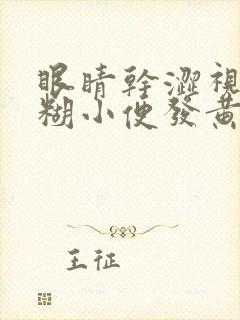 眼睛幹澀視
糊小便發黃
王征